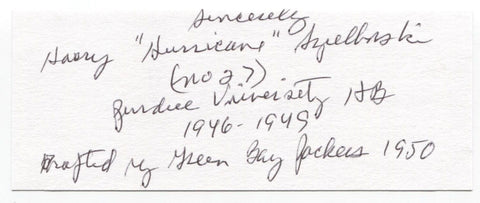 Sincerely
Harry "Hurricane" Szulborski
(no 27)
Purdue University HB
1946-1949
Drafted by Green Bay Packers 1950